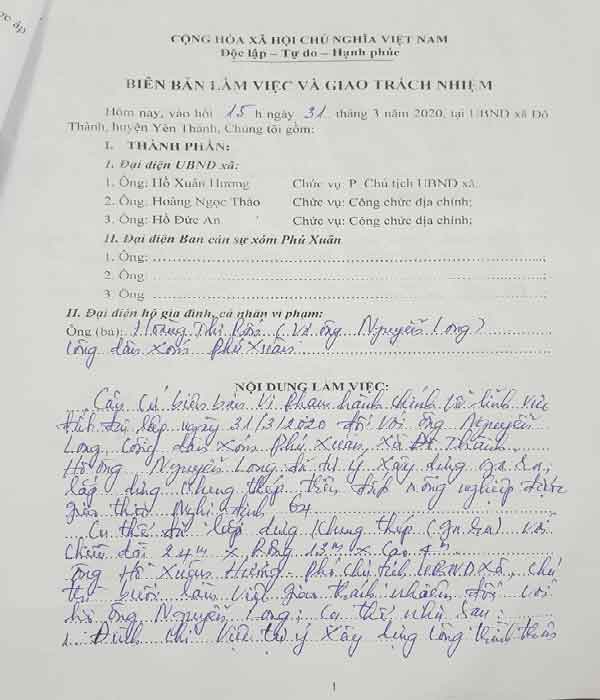 CỘNG HÒA XÃ HỘI CHỦ NGHĨA VIỆT NAM
Độc lập – Tự do – Hạnh phúc
BIÊN BẢN LÀM VIỆC VÀ GIAO TRÁCH NHIỆM
Hôm nay, vào hồi 15 h ngày 31 tháng 3 năm 2020, tại UBND xã Đô
Thành, huyện Yên Thành, Chúng tôi gồm:
I. THÀNH PHẦN:
I. Đại diện UBND xã:
1. Ông: Hồ Xuân Hương Chức vụ: P. Chủ tịch UBND xã.
2. Ông: Hoàng Ngọc Thảo Chức vụ: Công chức địa chính;
3. Ông: Hồ Đức An Chức vụ: Công chức địa chính;
II. Đại diện Ban cán sự xóm Phú Xuân
1. Ông:
2. Ông:
3. Ông
II. Đại diện hộ gia đình, cá nhân vi phạm:
Ông (bà): Hoàng Thị (Vợ ông Nguyễn Long)
Công dân xóm Phú Xuân
NỘI DUNG LÀM VIỆC:
Căn cứ biên bản vi phạm hành chính về lĩnh vực
đất đai lập ngày 31/3/2020 đối với ông Nguyễn
Long, công dân xóm Phú Xuân, xã Đô Thành.
Hộ ông Nguyễn Long đã tự ý xây dựng ga ra,
lắp dựng khung thép trên đất nông nghiệp được
giao theo Nghị định 64
Cụ thể đã lắp dựng khung thép (ga ra) với
chiều dài 24m x rộng 13m x cao 4m
Ông Hồ Xuân Hương - Phó chủ tịch UBND xã, chủ
trì buổi làm việc giao trách nhiệm đối với
hộ ông Nguyễn Long, cụ thể như sau:
1. Đình chỉ việc tự ý xây dựng công trình
1